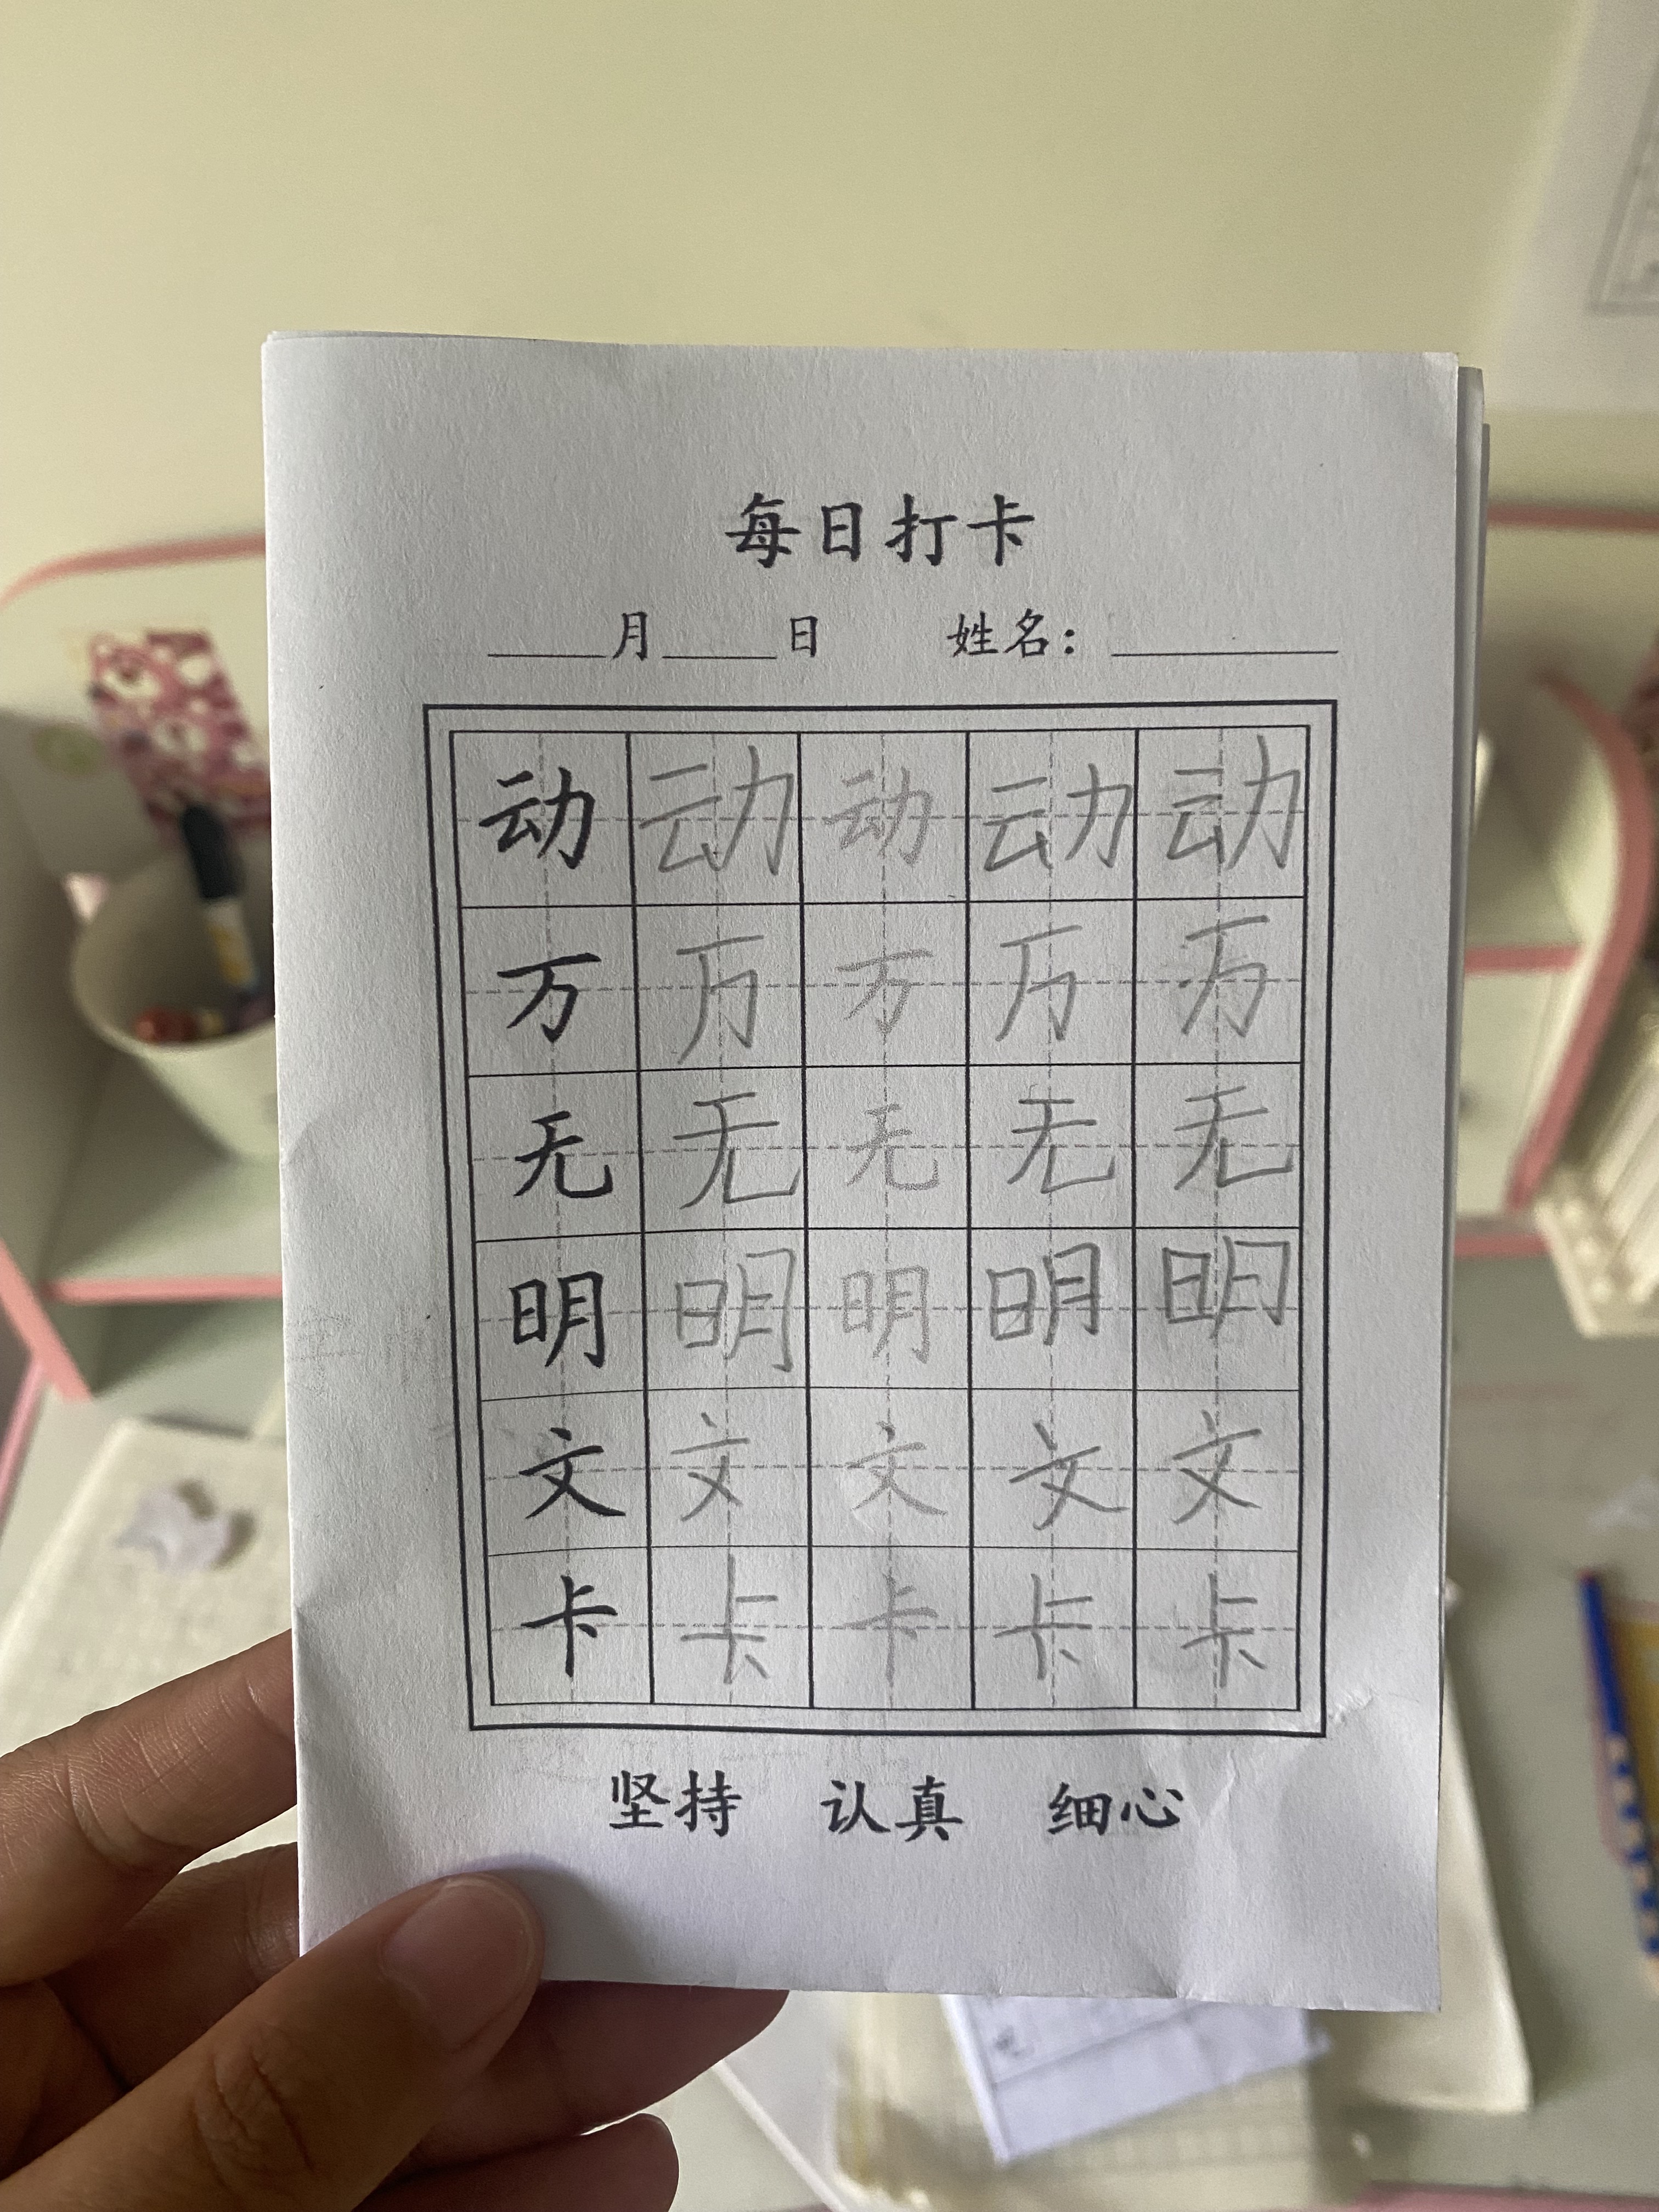 每日打卡
____月____日 姓名：________
动 动 动 动 动
万 万 万 万 万
无 无 无 无 无
明 明 明 明 明
文 文 文 文 文
卡 卡 卡 卡 卡
坚持 认真 细心